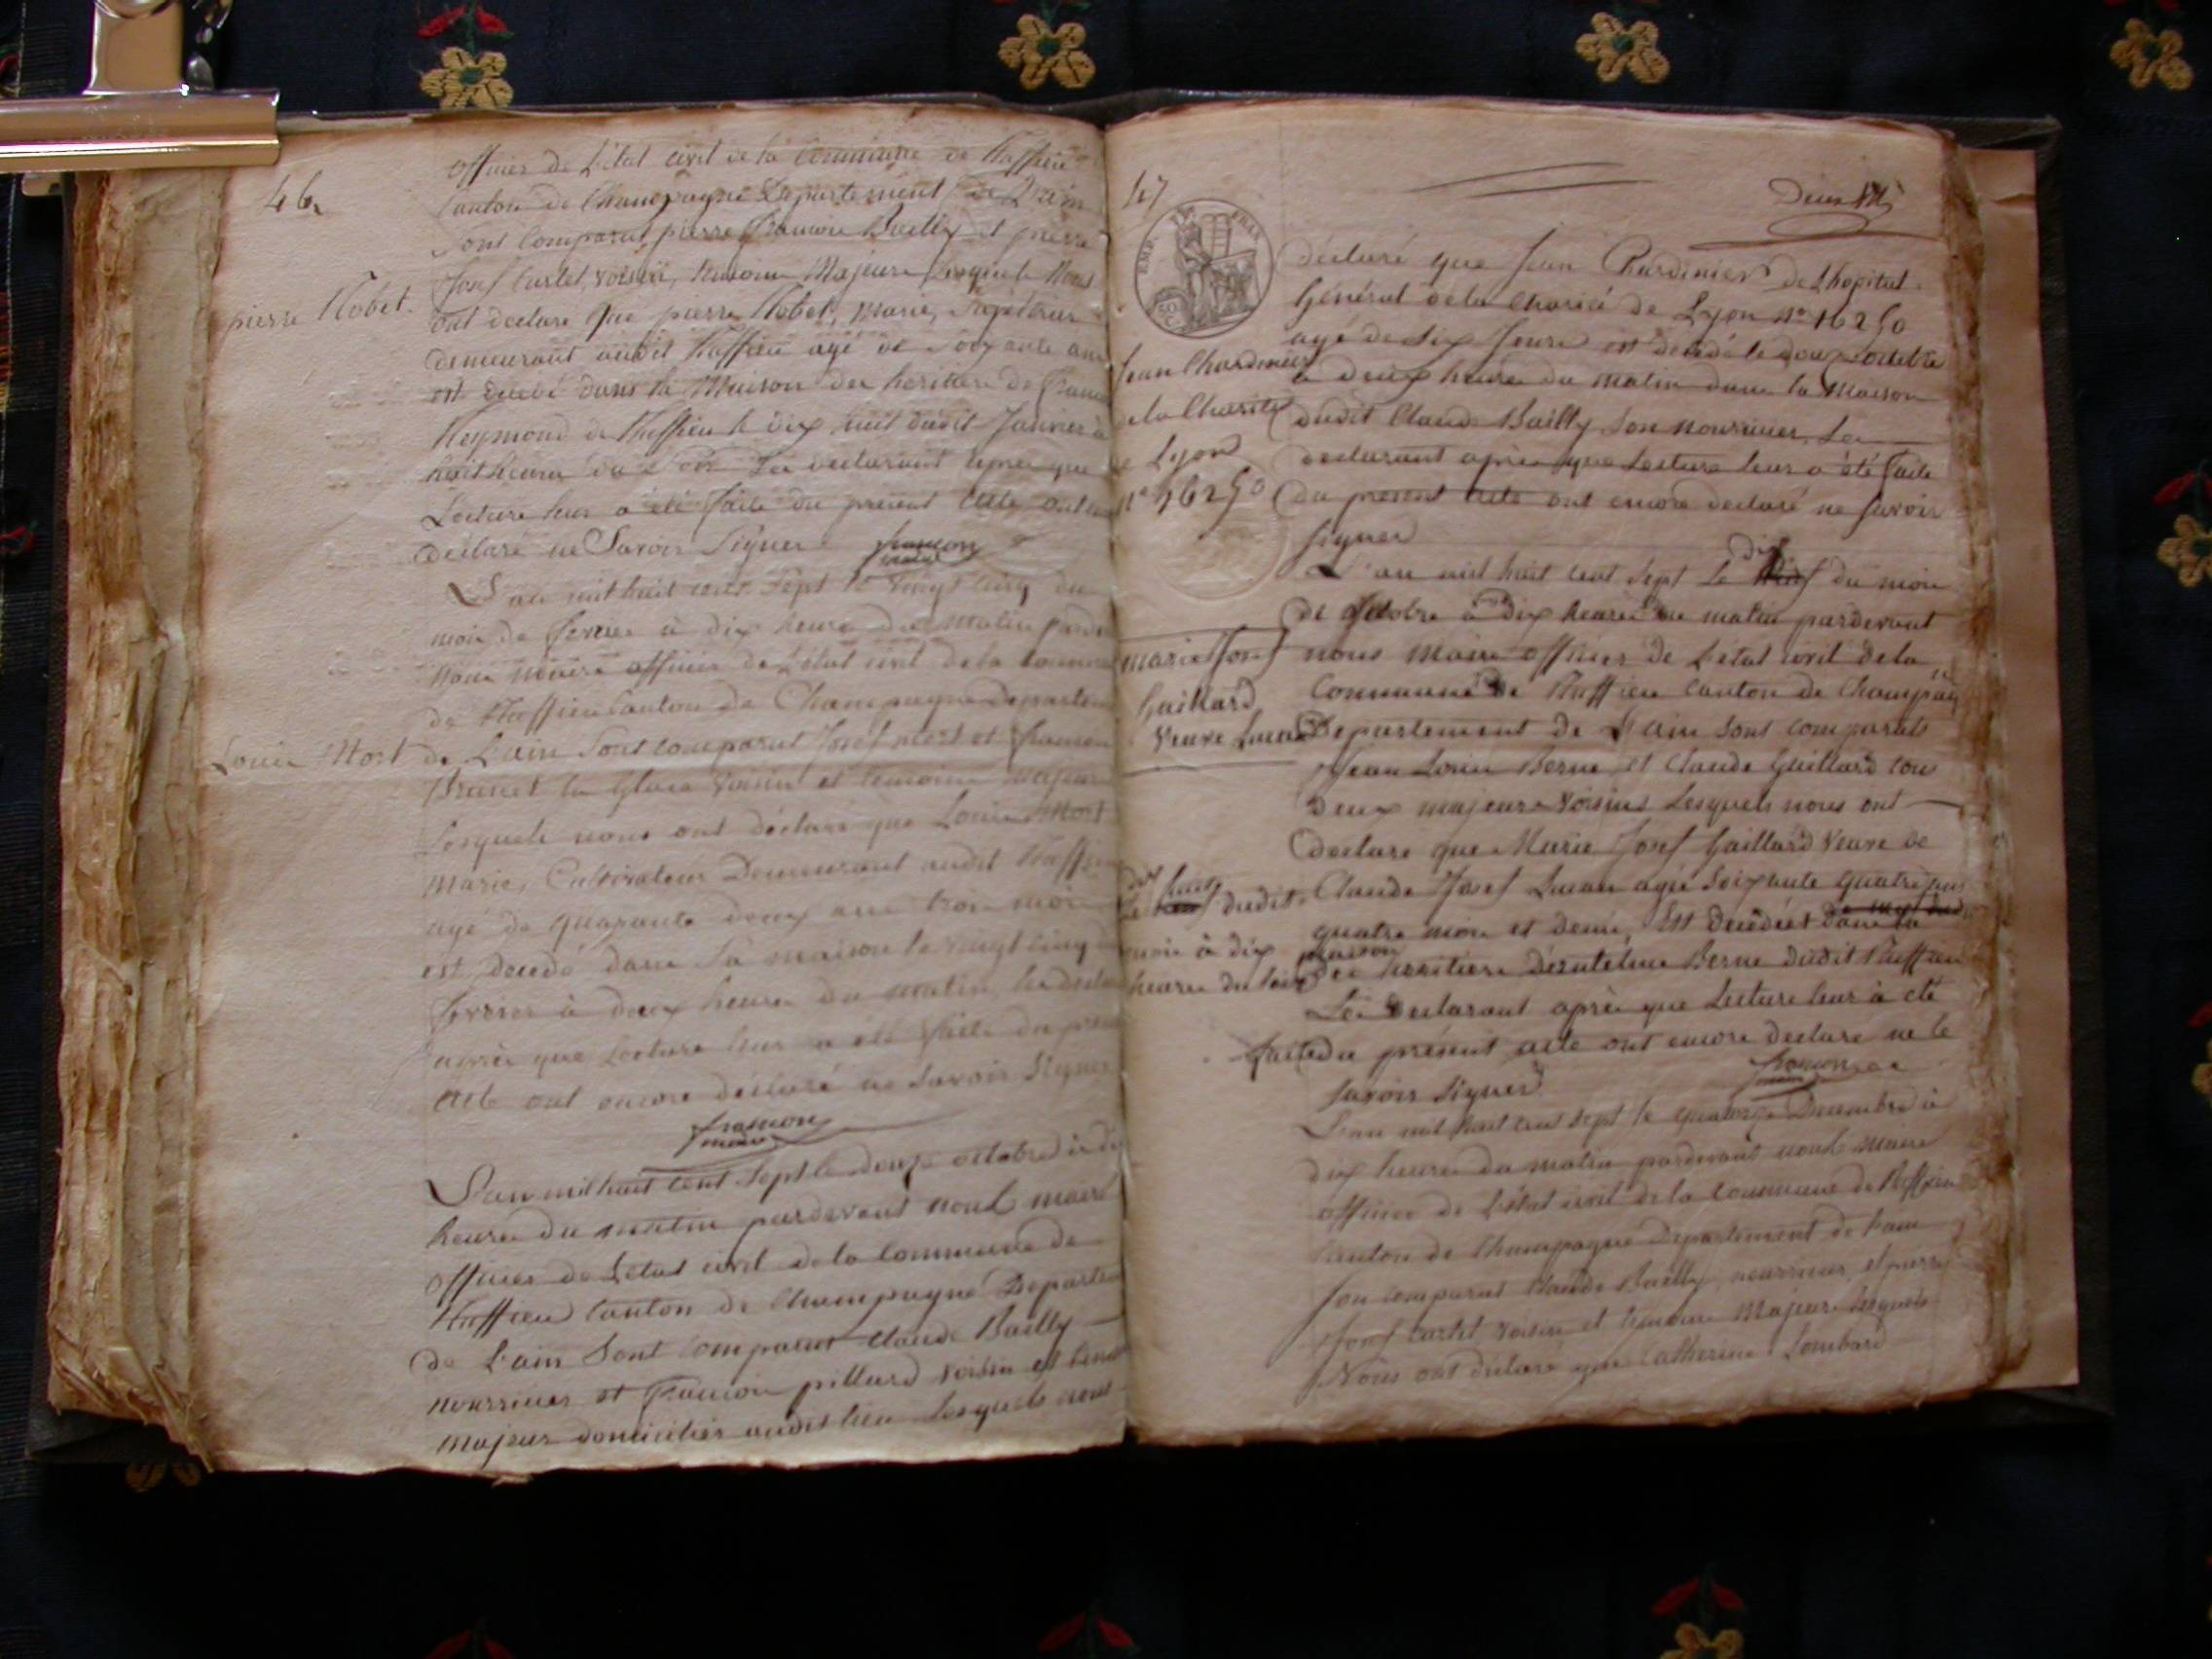 46.
officier de L'état civil de la Commune de Ruffieu
Canton de Champagne Departement de L'ain
sont comparus pierre françois Bailly et pierre
Josef Cartet, voisin, temoins Majeurs Lesquels Nous
pierre Robet.
ont declaré que pierre Robet, Marié,
demeurant audit Ruffieu agé de soixante ans
est decedé dans la Maison des heritiers de
Reymond de Ruffieu le dix huit dudit Janvier à
huit heures du soir Les declarants après que
Lecture leur a été faite du present acte ont
declaré ne Savoir Signer françon
maire
L'an mil huit cent Sept le vingt cinq du
mois de fevrier à dix heures du matin
nous maire officier de L'état civil de la
de Ruffieu Canton de Champagne departem
Louis Mort
de L'ain Sont comparus Josef mort et françois
Brunet la glace voisins et temoins majeurs
Lesquels nous ont déclaré que Louis Mort
Marié, Cultivateur Demeurant audit Ruffieu
agé de quarante deux ans trois mois
est decedé dans sa maison le vingt cinq
fevrier à deux heures du matin, les
après que Lecture leur a été faite du
acte ont encore déclaré ne Savoir Signer
françon
maire
L'an mil huit cent Sept le douze octobre à
heures du matin pardevant nous maire
officier de L'état civil de la Commune de
Ruffieu Canton de Champagne Departem
de L'ain Sont Comparus Claude Bailly
nourricier et françois pillard voisin et
Majeur domiciliés audit lieu Lesquels nous
47
EMP. FRAN.
50 C.
déclaré que Jean Chardinier de L'hopital
Général de la Charité de Lyon N° 16250
agé de Six Jours est decedé le douze octobre
Jean Chardinier
à deux heures du matin dans la Maison
de la Charité
dudit Claude Bailly Son nourricier, Les
de Lyon
declarant après que Lecture leur a été faite
N° 16250
du present acte ont encore declaré ne Savoir
Signer
L'an mil huit cent Sept Le dix du mois
de octobre à dix heures du matin pardevant
marie Josef
nous Maire officier de L'état civil de la
Gaillard
Commune de Ruffieu Canton de Champagne
Veuve Lucan
Departement de L'ain sont comparus
Jean Louis Berne et Claude Guillard tous
deux majeurs voisins Lesquels nous ont
declaré que Marie Josef Gaillard Veuve de
huit
dudit
Claude Josef Lucan agée Soixante quatre ans
mois à dix
quatre mois et demi, Est decedée dans la
heures du soir
maison
des heritiers Berne dudit Ruffieu
Les declarant après que Lecture leur à été
faite du présent acte ont encore declaré ne le
savoir Signer
françon
maire
L'an mil huit cent Sept le quatorze Decembre à
dix heures du matin pardevant nous maire
officier de L'état civil de la Commune de Ruffieu
Canton de Champagne Departement de L'ain
Son comparus Claude Bailly nourricier, et pierre
Josef Cartet voisin et temoins Majeurs Lesquels
Nous ont déclaré que Catherine Lombard